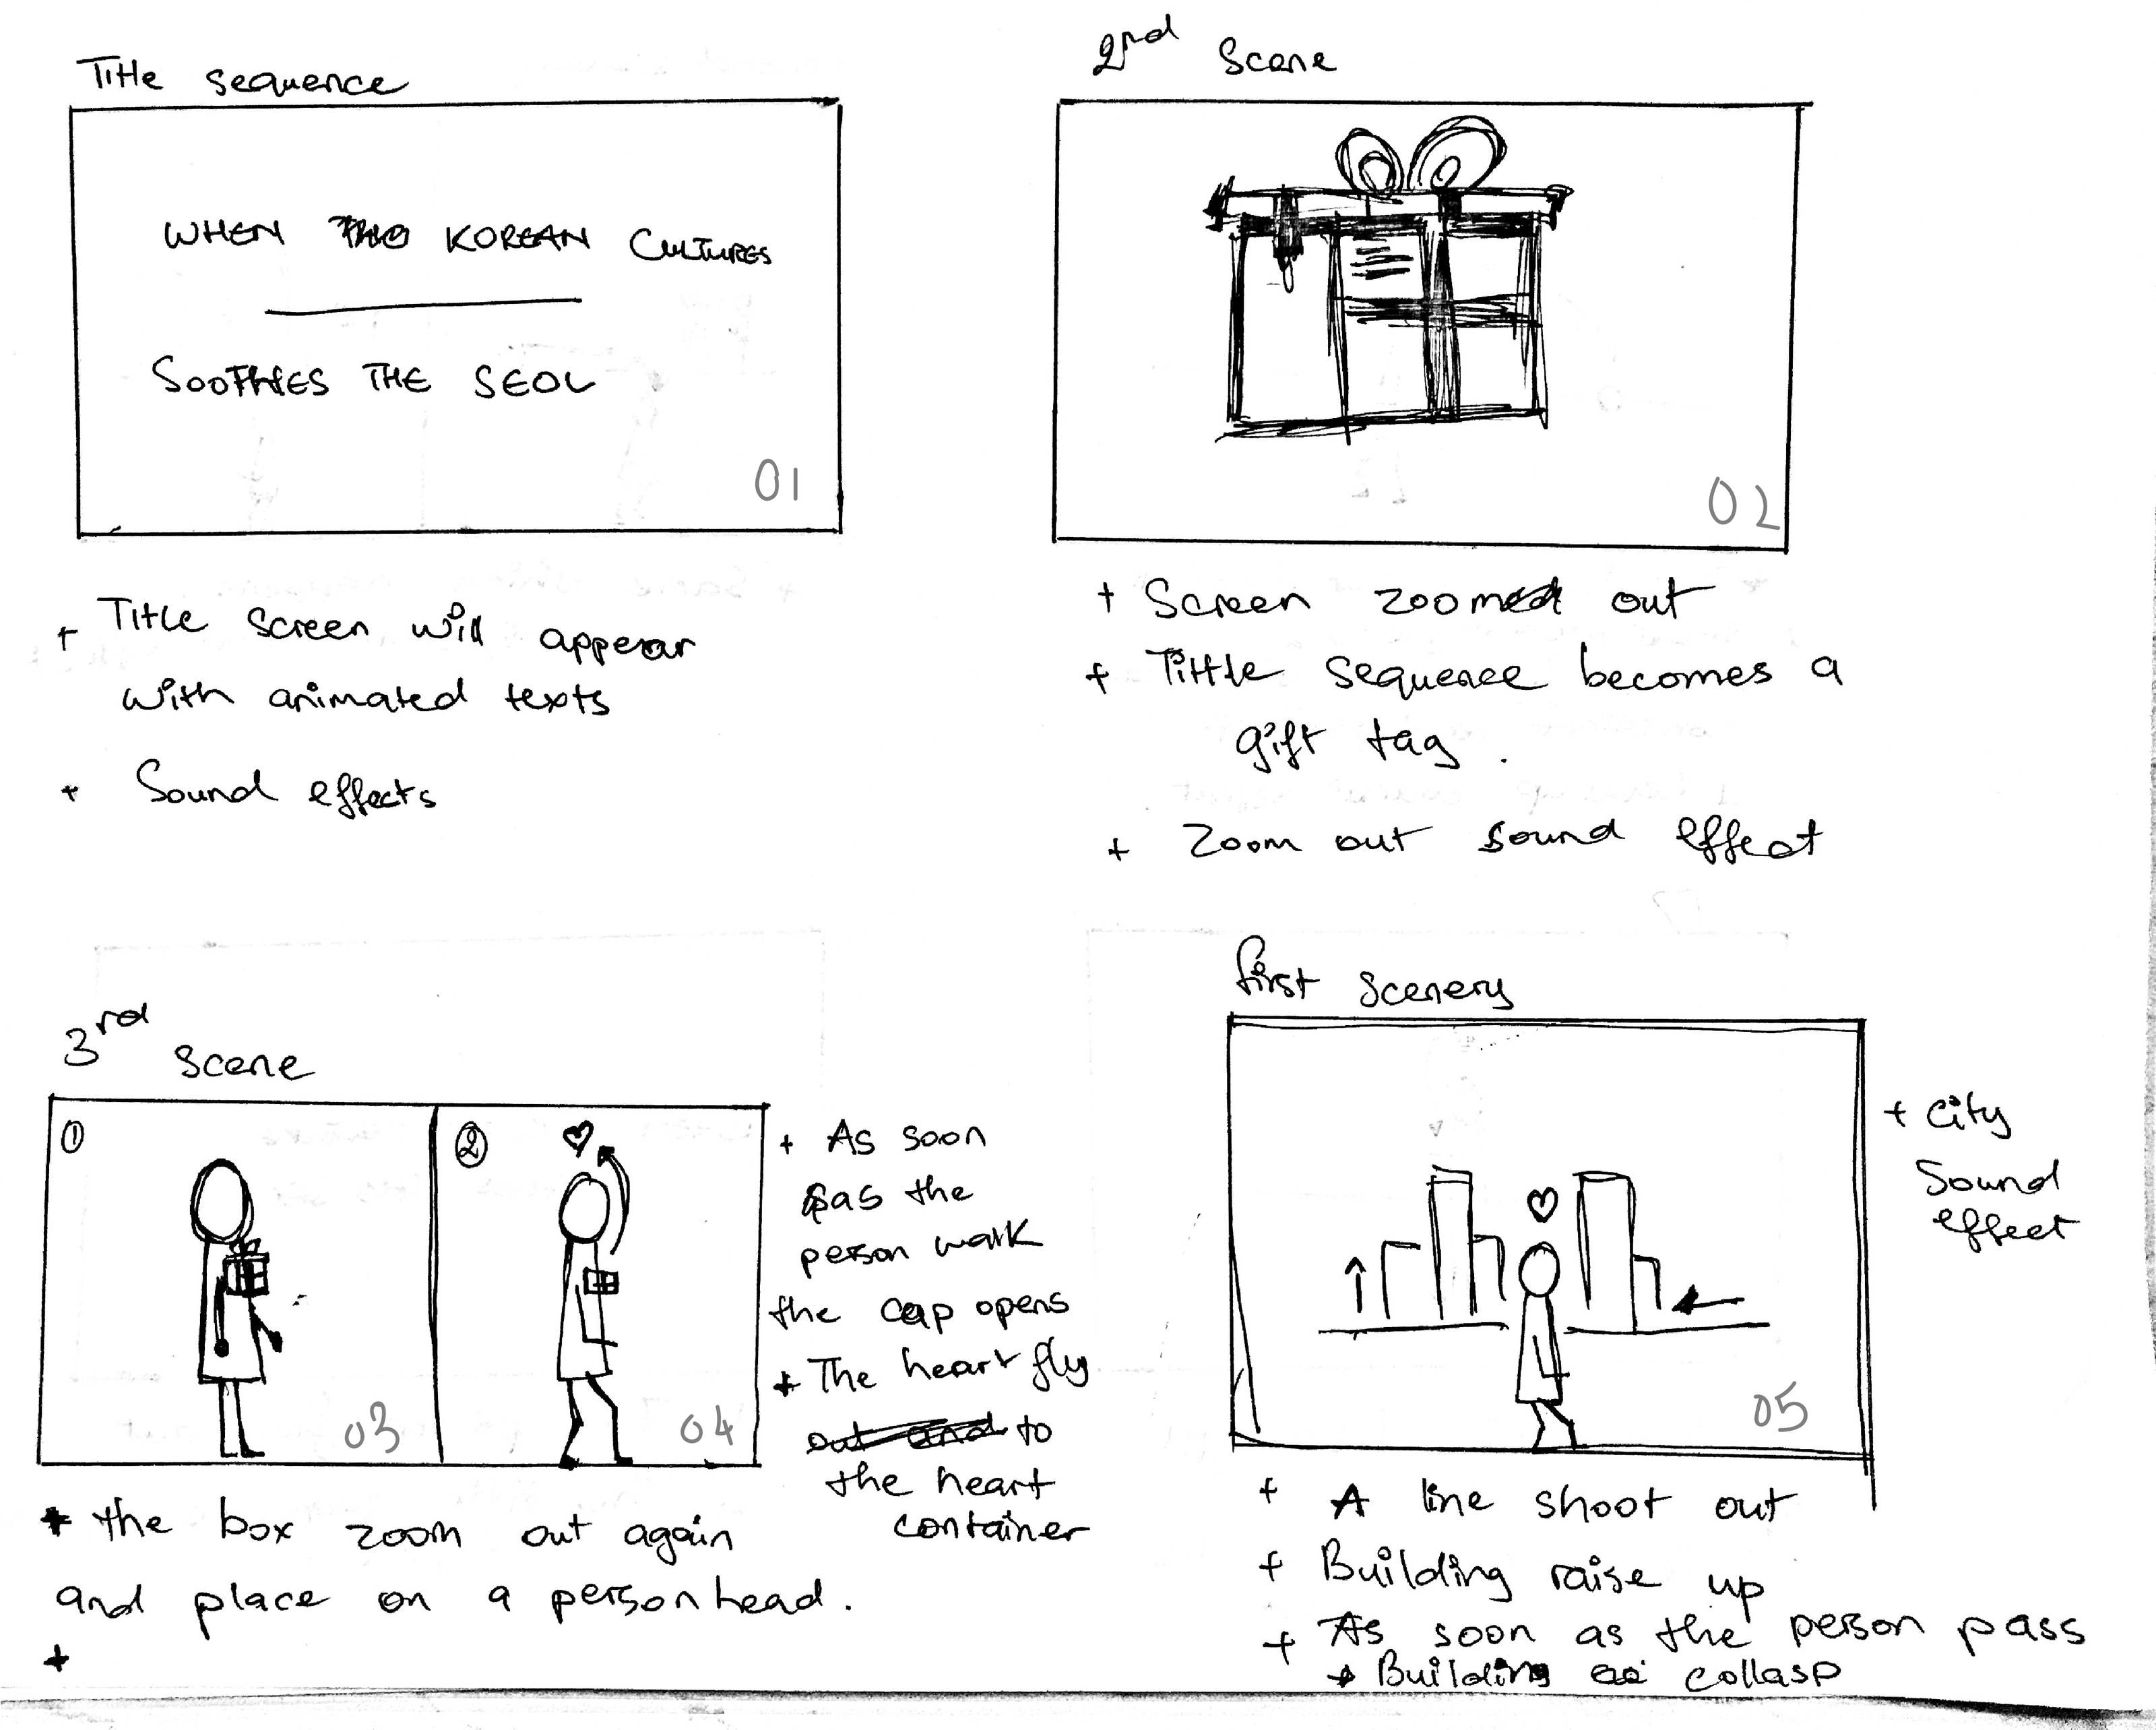 Title sequence
WHEN TWO KOREAN CULTURES
SOOTHES THE SEOL
01
+ Title screen will appear
with animated texts
+ Sound effects
2nd Scene
02
+ Screen zoomed out
+ Tittle sequence becomes a
gift tag .
+ Zoom out sound effect
3rd
Scene
①
03
②
04
+ As soon
as the
person walk
the cap opens
+ The heart fly
out and to
the heart
container
+ the box zoom out again
and place on a person head.
+
first scenery
05
+ City
Sound
effect
+ A line shoot out
+ Building raise up
+ As soon as the person pass
+ Building collasp